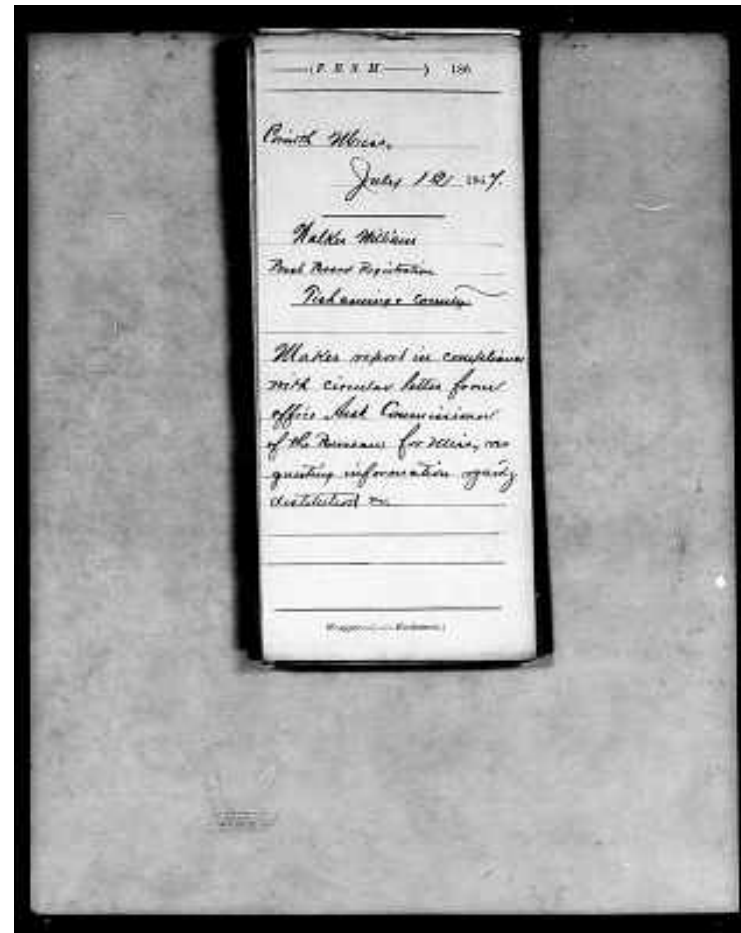 (F. R. S. M. ) 186
Corinth Miss,
July 12 1867.
Walker William
Prest Board Registration
Tishamingo County
Makes report in compliance
with circular letter from
office Asst Commissioner
of the Bureau for Miss, re
questing information regardg
destitution &c.